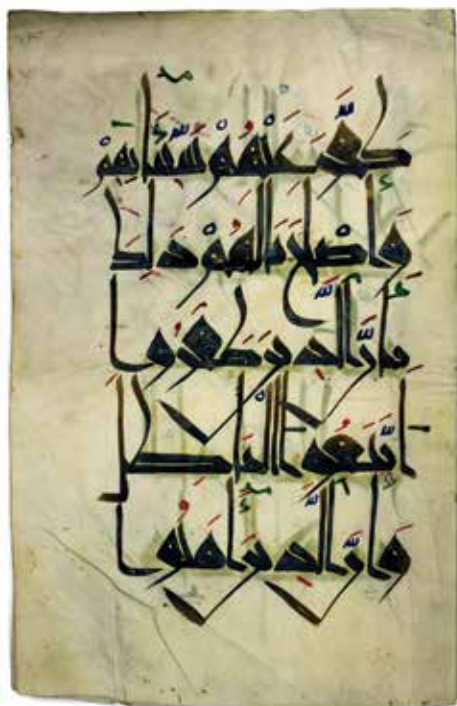 كَفَّرَ عَنْهُمْ سَيِّئَاتِهِمْ
وَأَصْلَحَ بَالَهُمْ ذَلِكَ
بِأَنَّ الَّذِينَ كَفَرُوا
اتَّبَعُوا الْبَاطِلَ
وَأَنَّ الَّذِينَ آمَنُوا